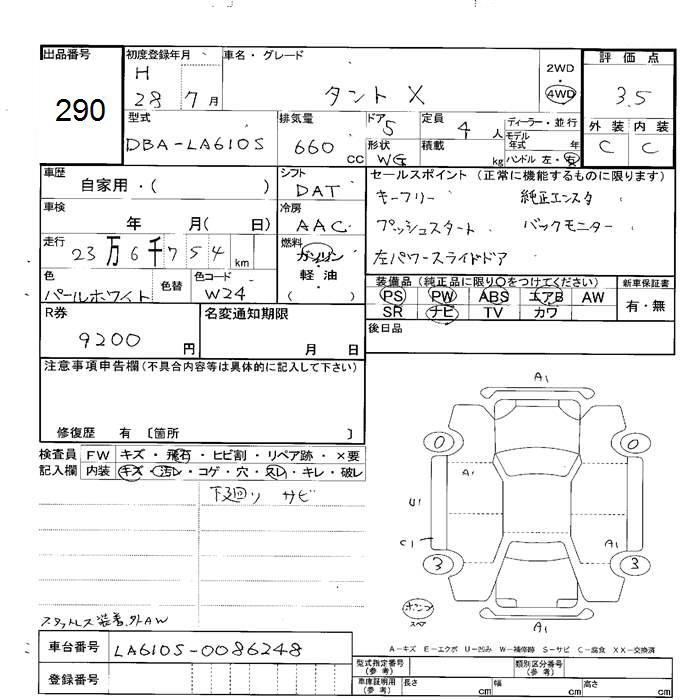 出品番号 初度登録年月 車名・グレード 評価点
290
H 28 7月
タント X
2WD・4WD
3.5
型式 排気量 ドア 定員 ディーラー・並行 外装 内装
DBA-LA610S 660 CC 5 4人
モデル年式 年
形状 積載
WG kg ハンドル 左・右
C C
車歴 シフト セールスポイント (正常に機能するものに限ります)
自家用・( ) DAT
キーフリー 純正エンスタ
車検 冷房
年 月( 日) AAC
プッシュスタート バックモニター
走行 燃料
23万6千754km ガソリン・軽油( )
左パワースライドドア
色 色替 色コード
パールホワイト W24
装備品(純正品に限り○をつけてください) 新車保証書
PS PW ABS エアB AW 有・無
SR ナビ TV カワ
R券 名変通知期限 後日品
9200円 月 日
注意事項申告欄(不具合内容等は具体的に記入して下さい)
修復歴 有 〔箇所 〕
検査員 FW キズ・飛石・ヒビ割・リペア跡・×要
記入欄 内装 キズ・汚レ・コゲ・穴・スレ・キレ・破レ
下廻り サビ
A1
0 0
A1
U1
C1 A1
3 3
A1
スタットレス装着、外AW
車台番号 LA610S-0086248
A-キズ E-エクボ U-凹み W-補修跡 S-サビ C-腐食 XX-交換済
登録番号
型式指定番号(参考) 類別区分番号(参考)
車庫証明用(参考) 長さ cm 幅 cm 高さ cm